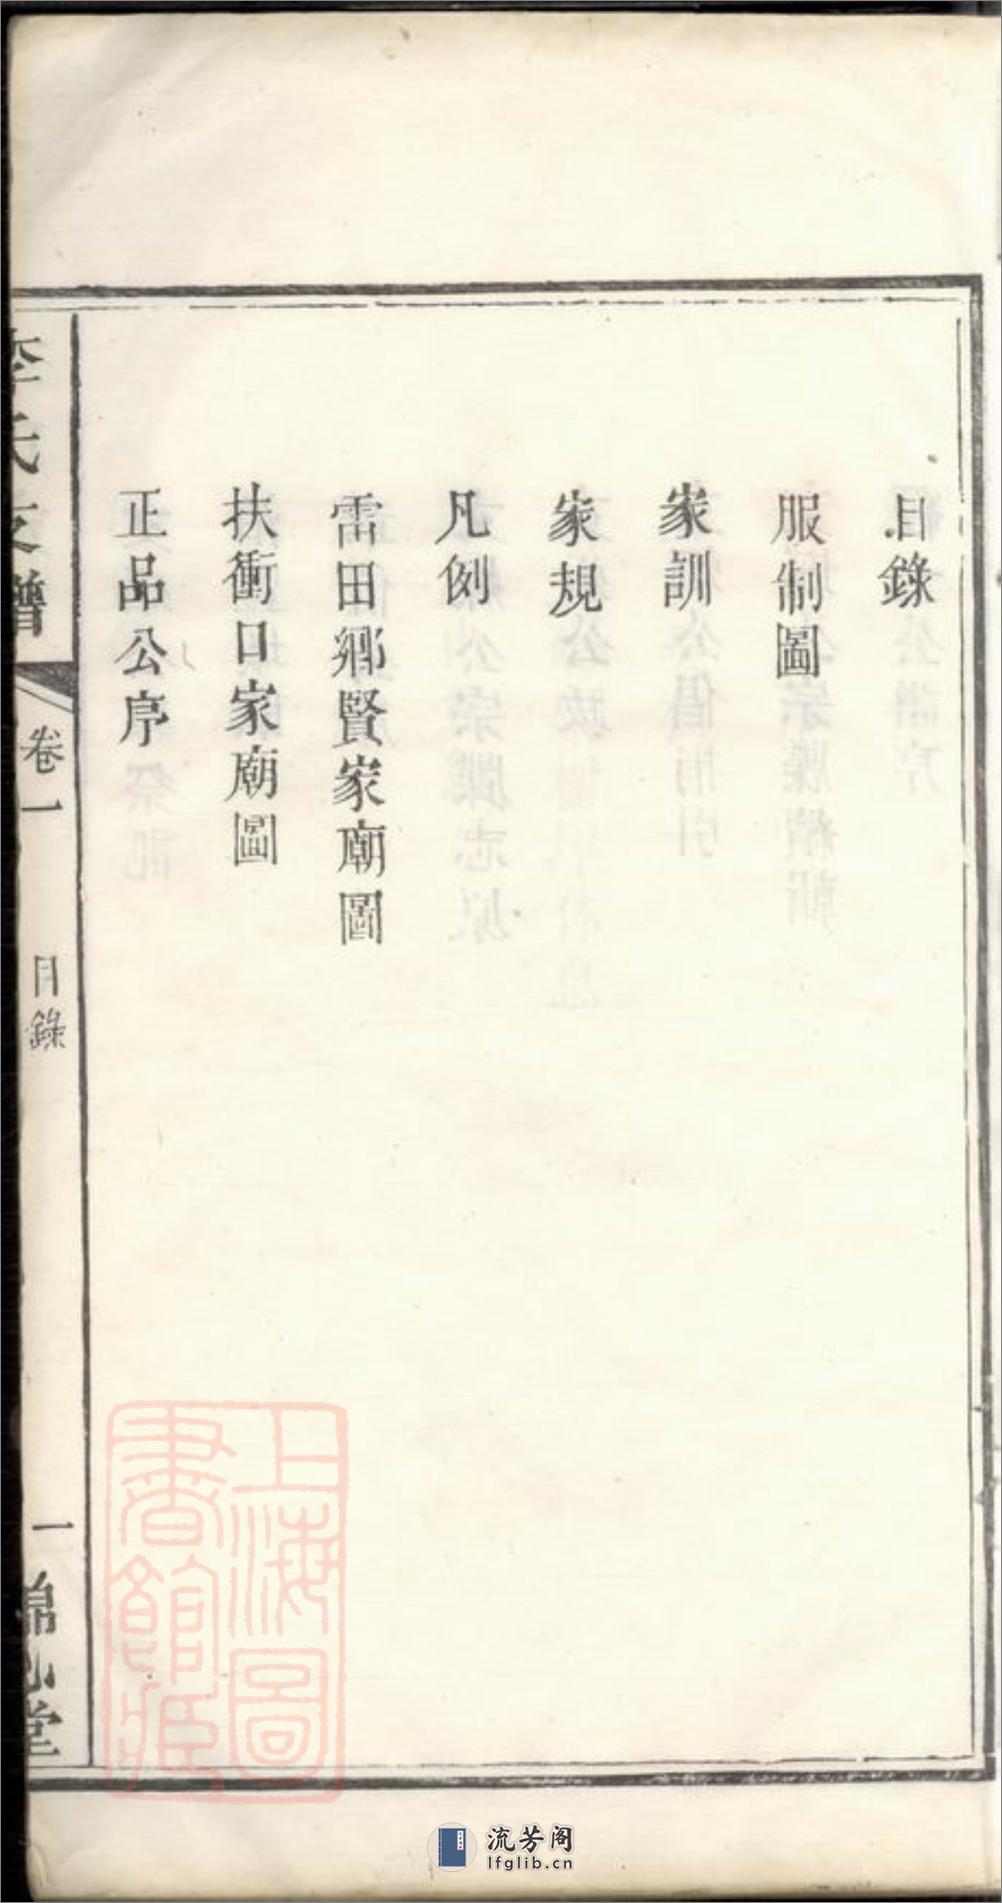 目錄
服制圖
家訓
家規
凡例
雷田鄉賢家廟圖
扶衝口家廟圖
正品公序
李氏支譜
卷一
目錄
一
錦
堂
上海圖
書館藏
流芳阁
lfglib.cn